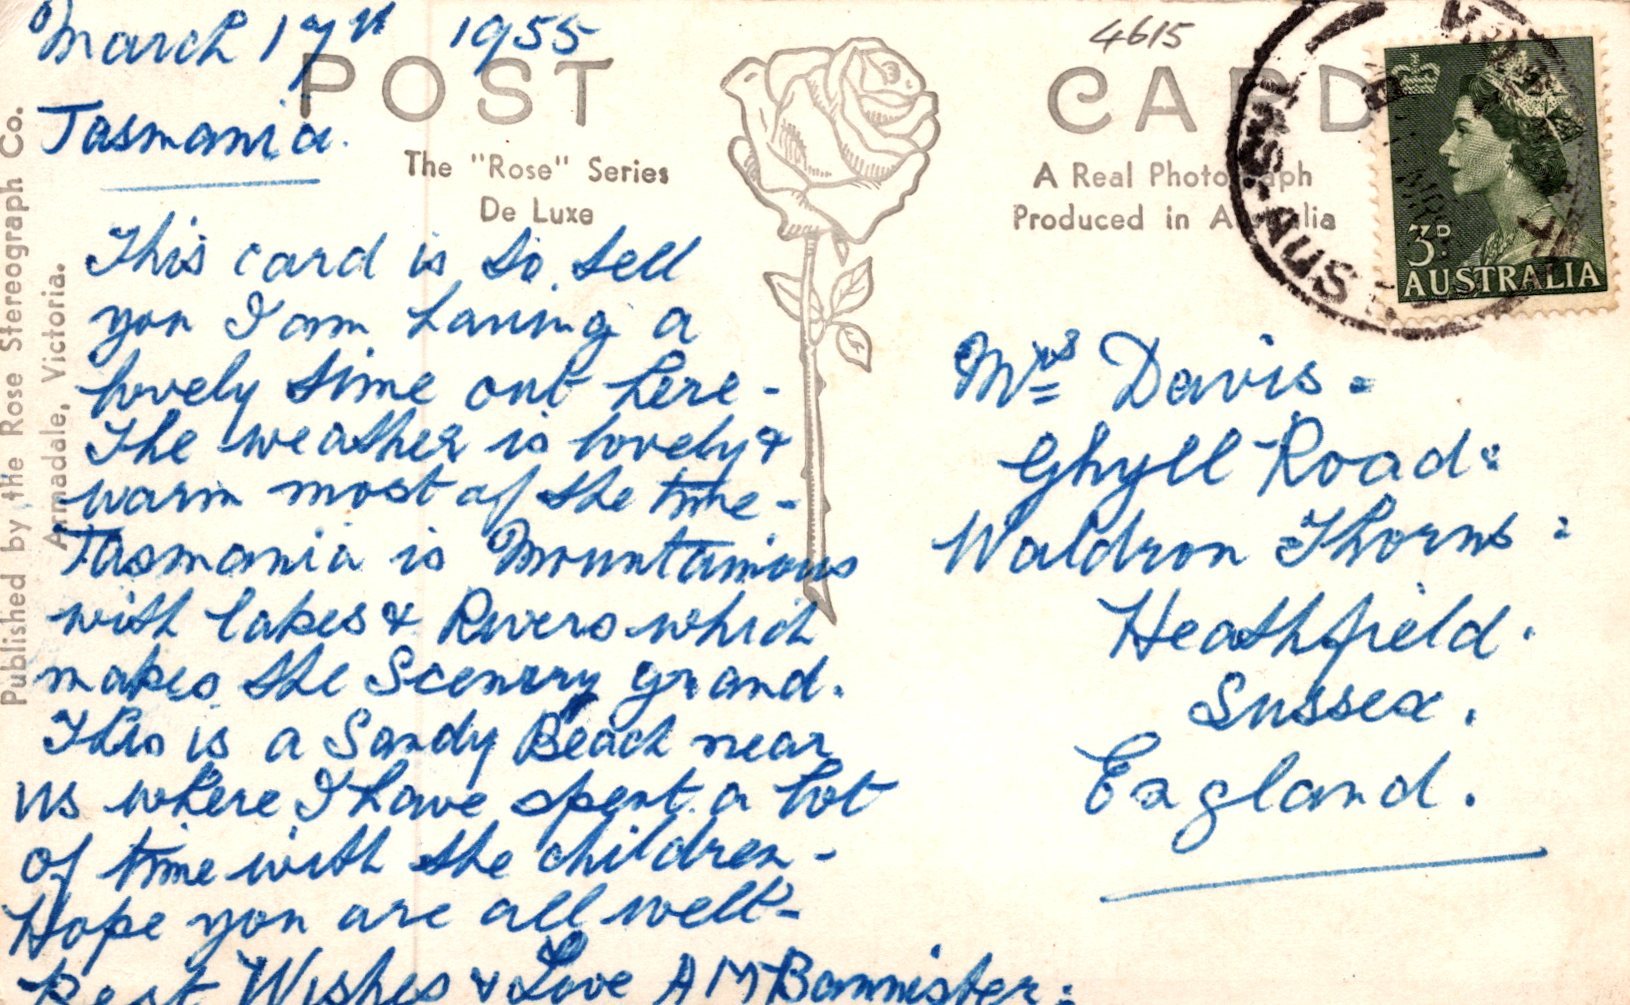 March 17th 1955
Tasmania.
4615
POST CARD
The "Rose" Series
De Luxe
A Real Photograph
Produced in Australia
Published by the Rose Stereograph Co.
Armadale, Victoria.
This card is to tell
you I am having a
lovely time out here -
The weather is lovely &
warm most of the time -
Tasmania is Mountainous
with lakes & Rivers which
makes the Scenery grand.
This is a Sandy Beach near
us where I have spent a lot
of time with the children -
Hope you are all well -
Best Wishes & Love A M Bannister.
Mrs Davis.
Ghyll Road:
Waldron Thorns:
Heathfield.
Sussex.
England.
3D
AUSTRALIA
TAS-AUST